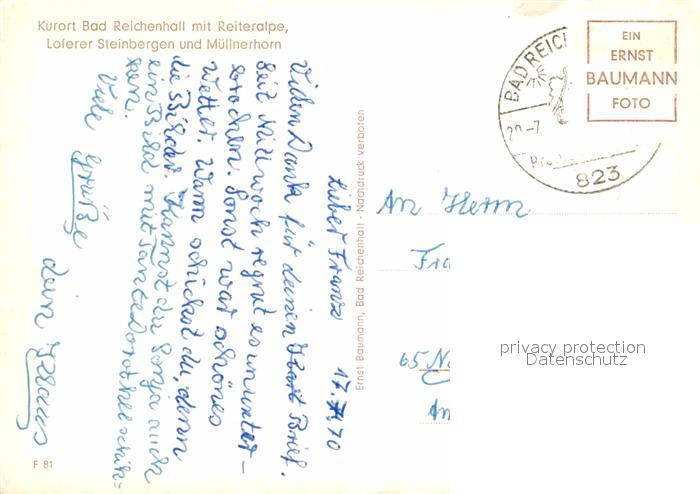 Kurort Bad Reichenhall mit Reiteralpe,
Loferer Steinbergen und Müllnerhorn
Lieber Franz 17.7.70
Vielen Dank für deinen Brief.
Seit Mittwoch regnet es ununter-
brochen. Sonst war schönes
Wetter. Wann schickst du, denn
die Bilder. Kannst du Sonja auch
ein Bild mit Tante Dorothee schik-
ken.
Viele Grüße
dein Klaus
F 81
Ernst Baumann, Bad Reichenhall - Nachdruck verboten
BAD REICH
20.-7.
823
EIN
ERNST
BAUMANN
FOTO
An Herrn
Fra
65
privacy protection
Datenschutz